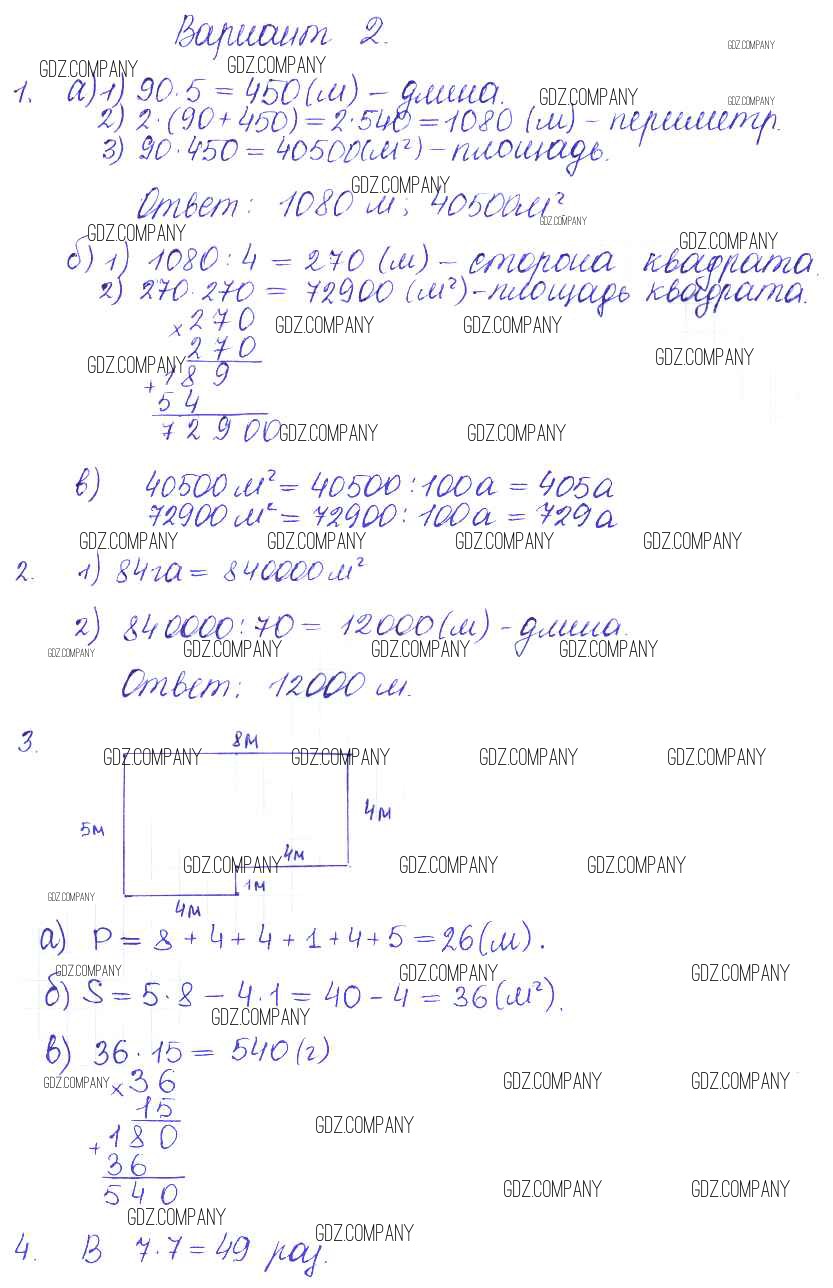 Вариант 2.
GDZ.COMPANY
GDZ.COMPANY GDZ.COMPANY
1. а) 1) 90·5 = 450 (м) – длина.
GDZ.COMPANY GDZ.COMPANY
2) 2·(90 + 450) = 2·540 = 1080 (м) – периметр.
3) 90·450 = 40500(м²) – площадь.
GDZ.COMPANY
Ответ: 1080 м; 40500м²
GDZ.COMPANY
GDZ.COMPANY GDZ.COMPANY
б) 1) 1080 : 4 = 270 (м) – сторона квадрата.
2) 270·270 = 72900 (м²) – площадь квадрата.
× 270
GDZ.COMPANY GDZ.COMPANY
270
GDZ.COMPANY GDZ.COMPANY
+ 189
54
72900
GDZ.COMPANY GDZ.COMPANY
в) 40500 м² = 40500 : 100а = 405а
72900 м² = 72900 : 100а = 729а
GDZ.COMPANY GDZ.COMPANY GDZ.COMPANY GDZ.COMPANY
2. 1) 84га = 840000м²
2) 840000 : 70 = 12000 (м) – длина.
GDZ.COMPANY GDZ.COMPANY GDZ.COMPANY GDZ.COMPANY
Ответ: 12000 м.
3.
8м
GDZ.COMPANY GDZ.COMPANY GDZ.COMPANY GDZ.COMPANY
5м
4м
4м
GDZ.COMPANY GDZ.COMPANY GDZ.COMPANY
1м
GDZ.COMPANY
4м
а) P = 8 + 4 + 4 + 1 + 4 + 5 = 26 (м).
GDZ.COMPANY GDZ.COMPANY GDZ.COMPANY
б) S = 5·8 – 4·1 = 40 – 4 = 36 (м²).
GDZ.COMPANY
в) 36·15 = 540 (г)
GDZ.COMPANY × 36 GDZ.COMPANY GDZ.COMPANY
15
GDZ.COMPANY
+ 180
36
540
GDZ.COMPANY GDZ.COMPANY
GDZ.COMPANY
GDZ.COMPANY
4. В 7·7 = 49 раз.